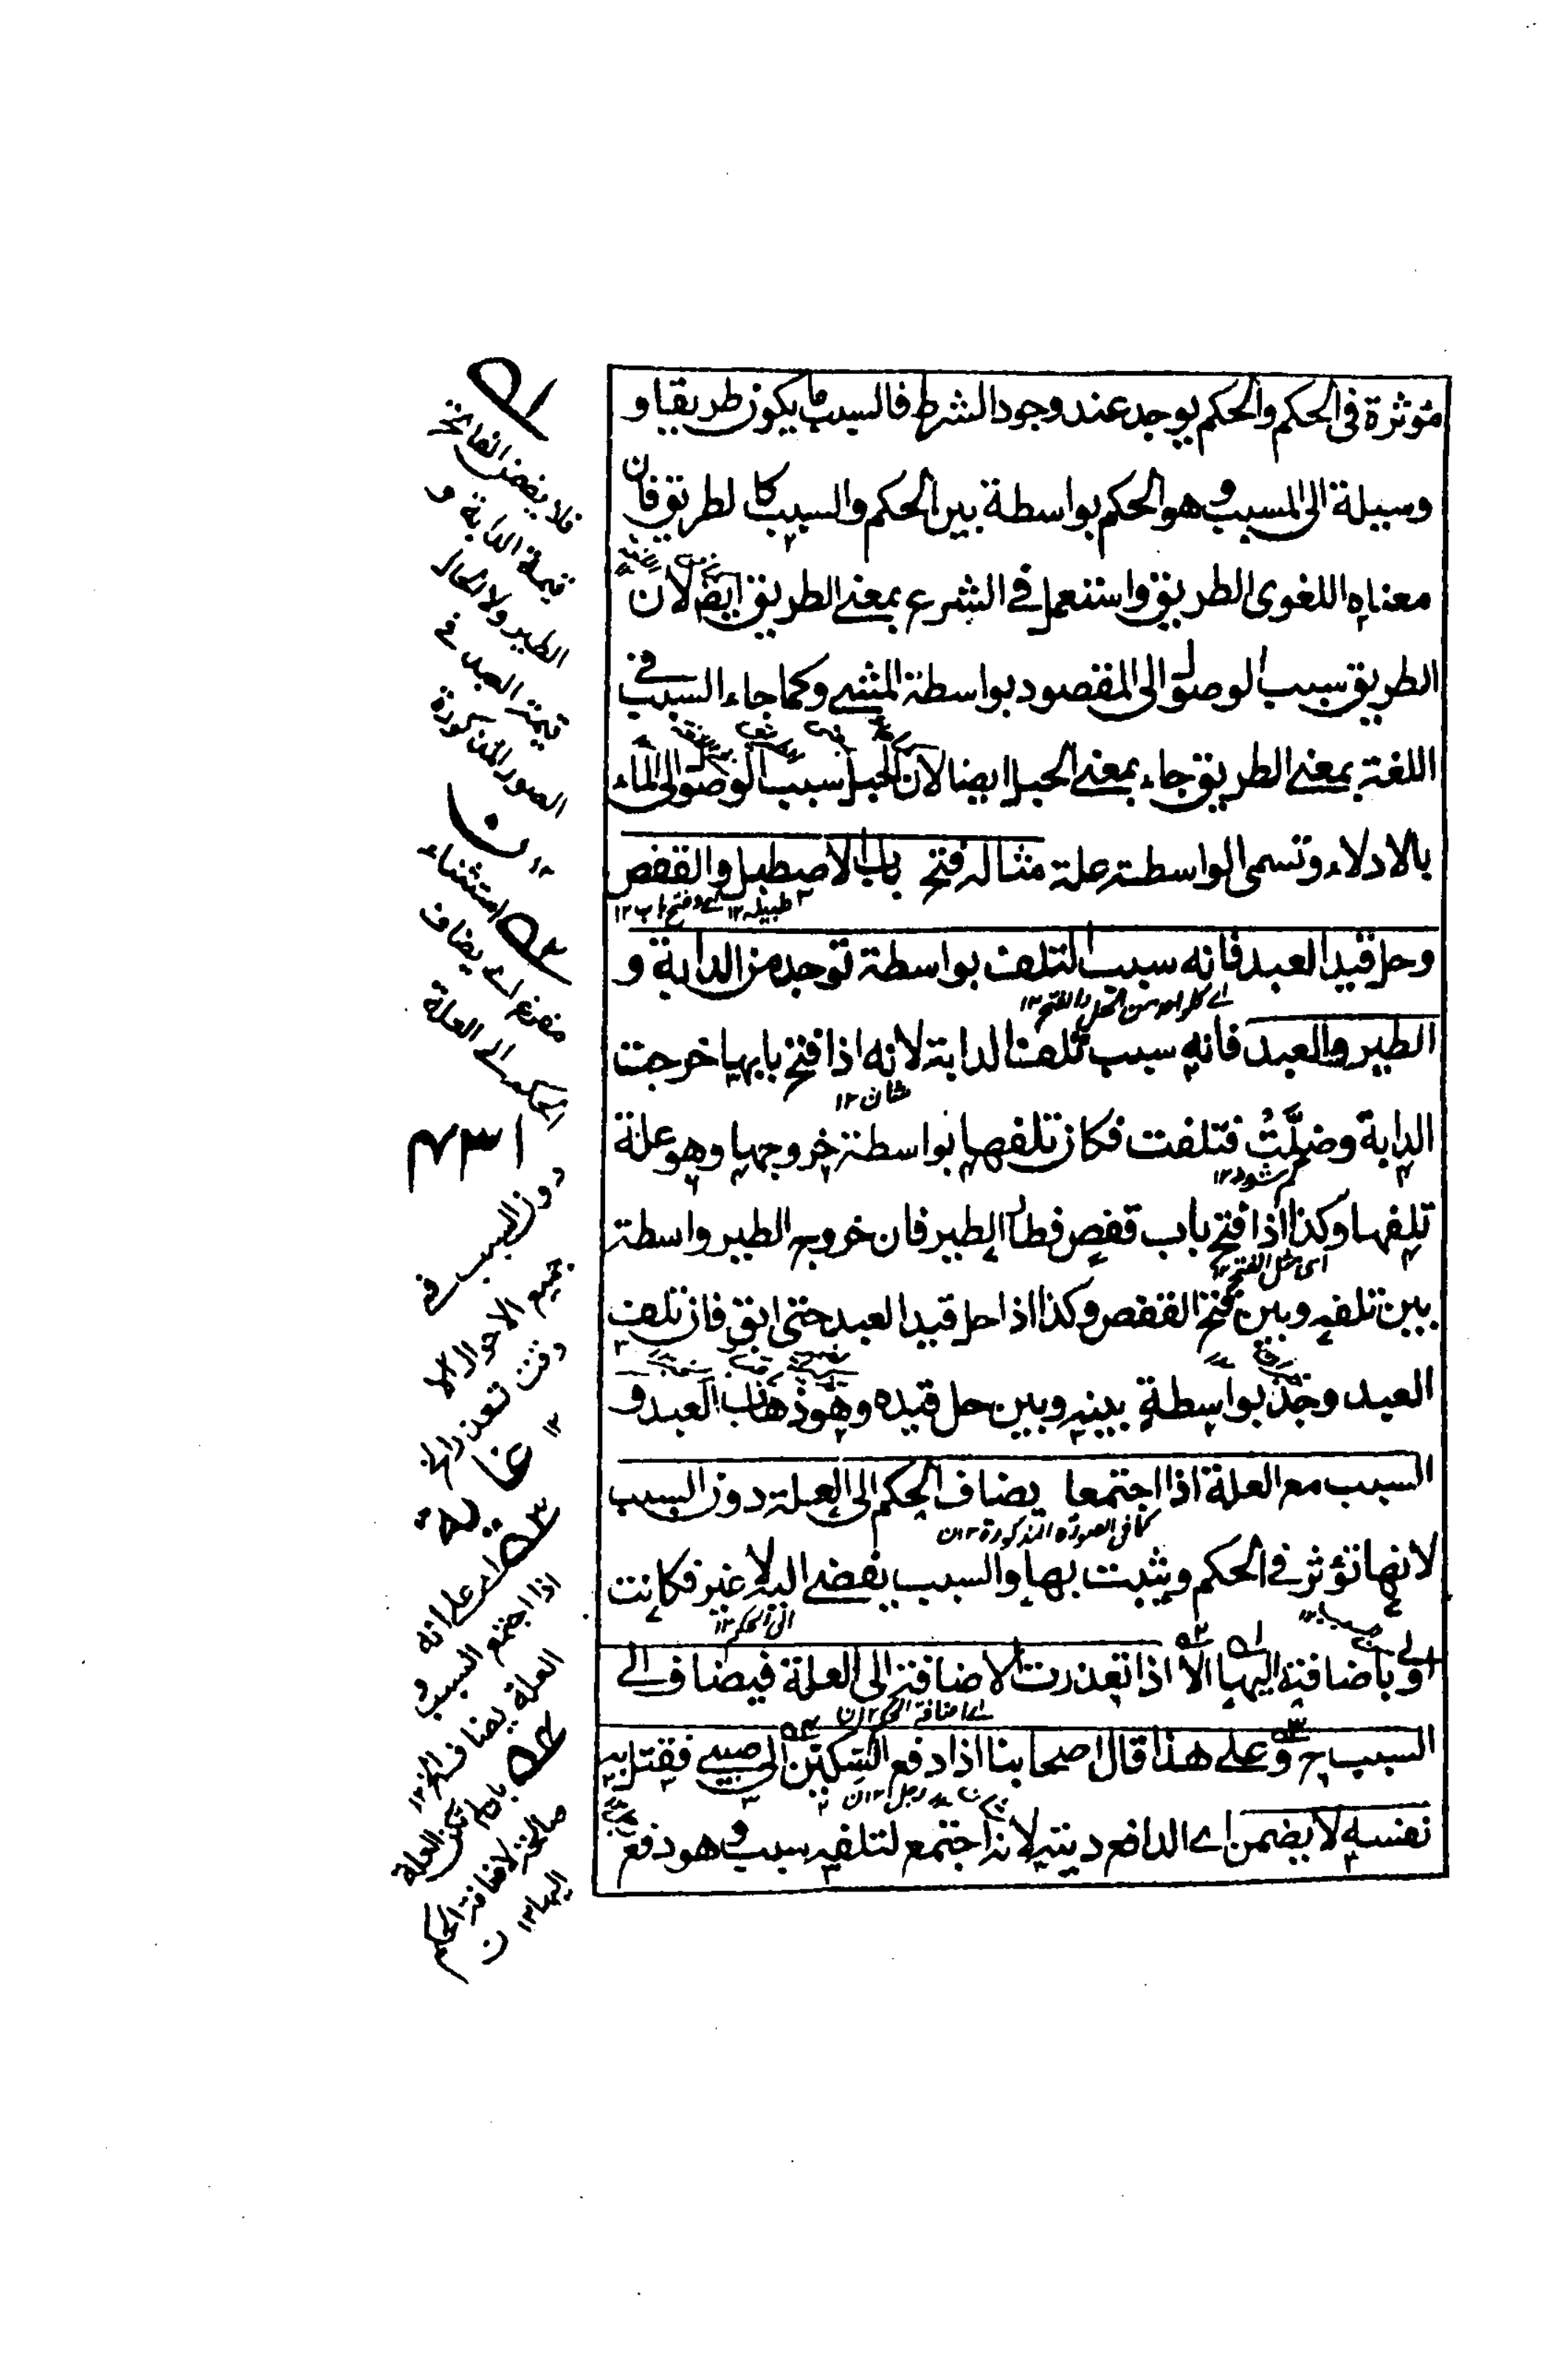 مؤثرة فى الحكم والحكم يوجد عند وجود الشرط فالسبب ما يكون طريقا و
وسيلة الى المسبب وهو الحكم بواسطة بين الحكم والسبب كالطريق فان
معناه اللغوى الطريق واستعمل فى الشرع بمعنى الطريق ايضا لان
الطريق سبب الوصول الى المقصود بواسطة المشى وكما جاء السبب فى
اللغة بمعنى الطريق جاء بمعنى الحبل ايضا لان الحبل سبب الوصول الى الماء
بالادلاء وتسمى الواسطة علة مثاله فتح باب الاصطبل والقفص
طبيله ١٢ اے وفتح باب ١٢
وحل قيد العبد فانه سبب التلف بواسطة توجد من الدابة و
اے كل واحد من الحل والفتح ١٢
الطير والعبد فانه سبب تلف الدابة لانه اذا فتح بابها خرجت
شان ١٢
الدابة وضلّت فتلفت فكان تلفها بواسطة خروجها وهو علة
گم شود ١٢
تلفها وكذا اذا فتح باب قفص فطار الطير فان خروج الطير واسطة
اى مثل الفتح ١٢
بين تلفه وبين فتح القفص وكذا اذا حل قيد العبد حتى ابق فان تلف
العبد وجد بواسطة بينه وبين حل قيده وهو ذهاب العبد و
السبب مع العلة اذا اجتمعا يضاف الحكم الى العلة دون السبب
كما فى الصورة المذكورة ١٢ ن
لانها تؤثر فى الحكم ويثبت بها والسبب يفضى اليه لا غير فكانت
الى الحكم ١٢
اولى باضافته اليها الا اذا تعذرت الاضافة الى العلة فيضاف الى
اے اضافة الحكم ١٢ ن
السبب ح وعلى هذا قال اصحابنا اذا دفع السكين الى صبى فقتل به
رجل ١٢ ن
نفسه لا يضمن اے الدافع ديته لانه اجتمع لتلفه سبب وهو دفع
فلا يضمن الفاتح
قيمة الدابة و
الطير ولا الحال
قيمة العبد فى
الصور المذكورة
١٢ ن
استثناء
مفرغ اے يضاف
الحكم الى العلة
دون السبب فى
جميع الاحوال الا
وقت تعذر الخ
١٢ غاية
اے على انه
اذا اجتمع السبب و
العلة يضاف الخ ١٢
بان لم تكن العلة
صالحة لاضافة الحكم
اليها ١٢ ن